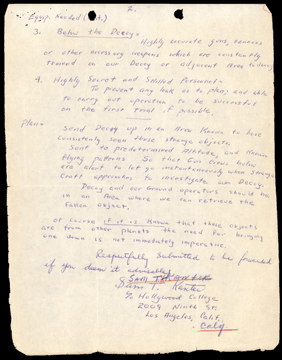 2.
3. Below the Decoy=
Highly accurate guns, cannons
or other necessary weapons which are constantly
trained on our Decoy or adjacent Area
4. Highly Secret and Skilled Personnel=
To prevent any leak as to plans and able
to carry out operation to be successful
on the first trial if possible.
Plan=
Send Decoy up in an Area Known to have
consistently seen these strange objects.
Sent to predetermined Altitude, and Known
flying patterns. So that Gun Crews below
are alert to let go instantaneously when strange
Craft approaches to investigate our Decoy.
Decoy and our Ground operators should be
in an Area where we can retrieve the
Fallen object.
Of course if it is Known that these objects
are from other planets the need for bringing
one down is not immediately imperative.
Respectfully Submitted to be forwarded
if you deem it advisable
Sam T. Kanter
c/o Hollywood College
2009 Ninth St.
Los Angeles, Calif.
Calif